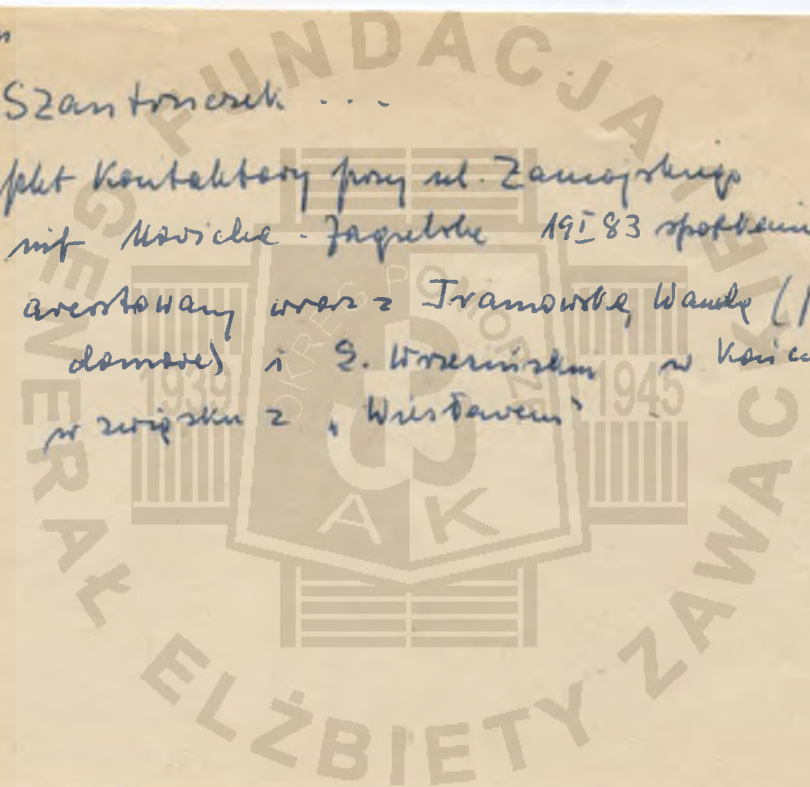 Szantruczek ...
pkt kontaktowy przy ul. Zamojskiego
inf Nowicka - Jagielska 19 I 83 spotkani
aresztowany wraz z Iranowską Wandą (
domowe) i S. Wrzesińskim w
w związku z "Wiesławem"
FUNDACJA
GENERAŁ ELŻBIETY ZAWACKIEJ
OKRĘG POMORZE
1939 1945
AK